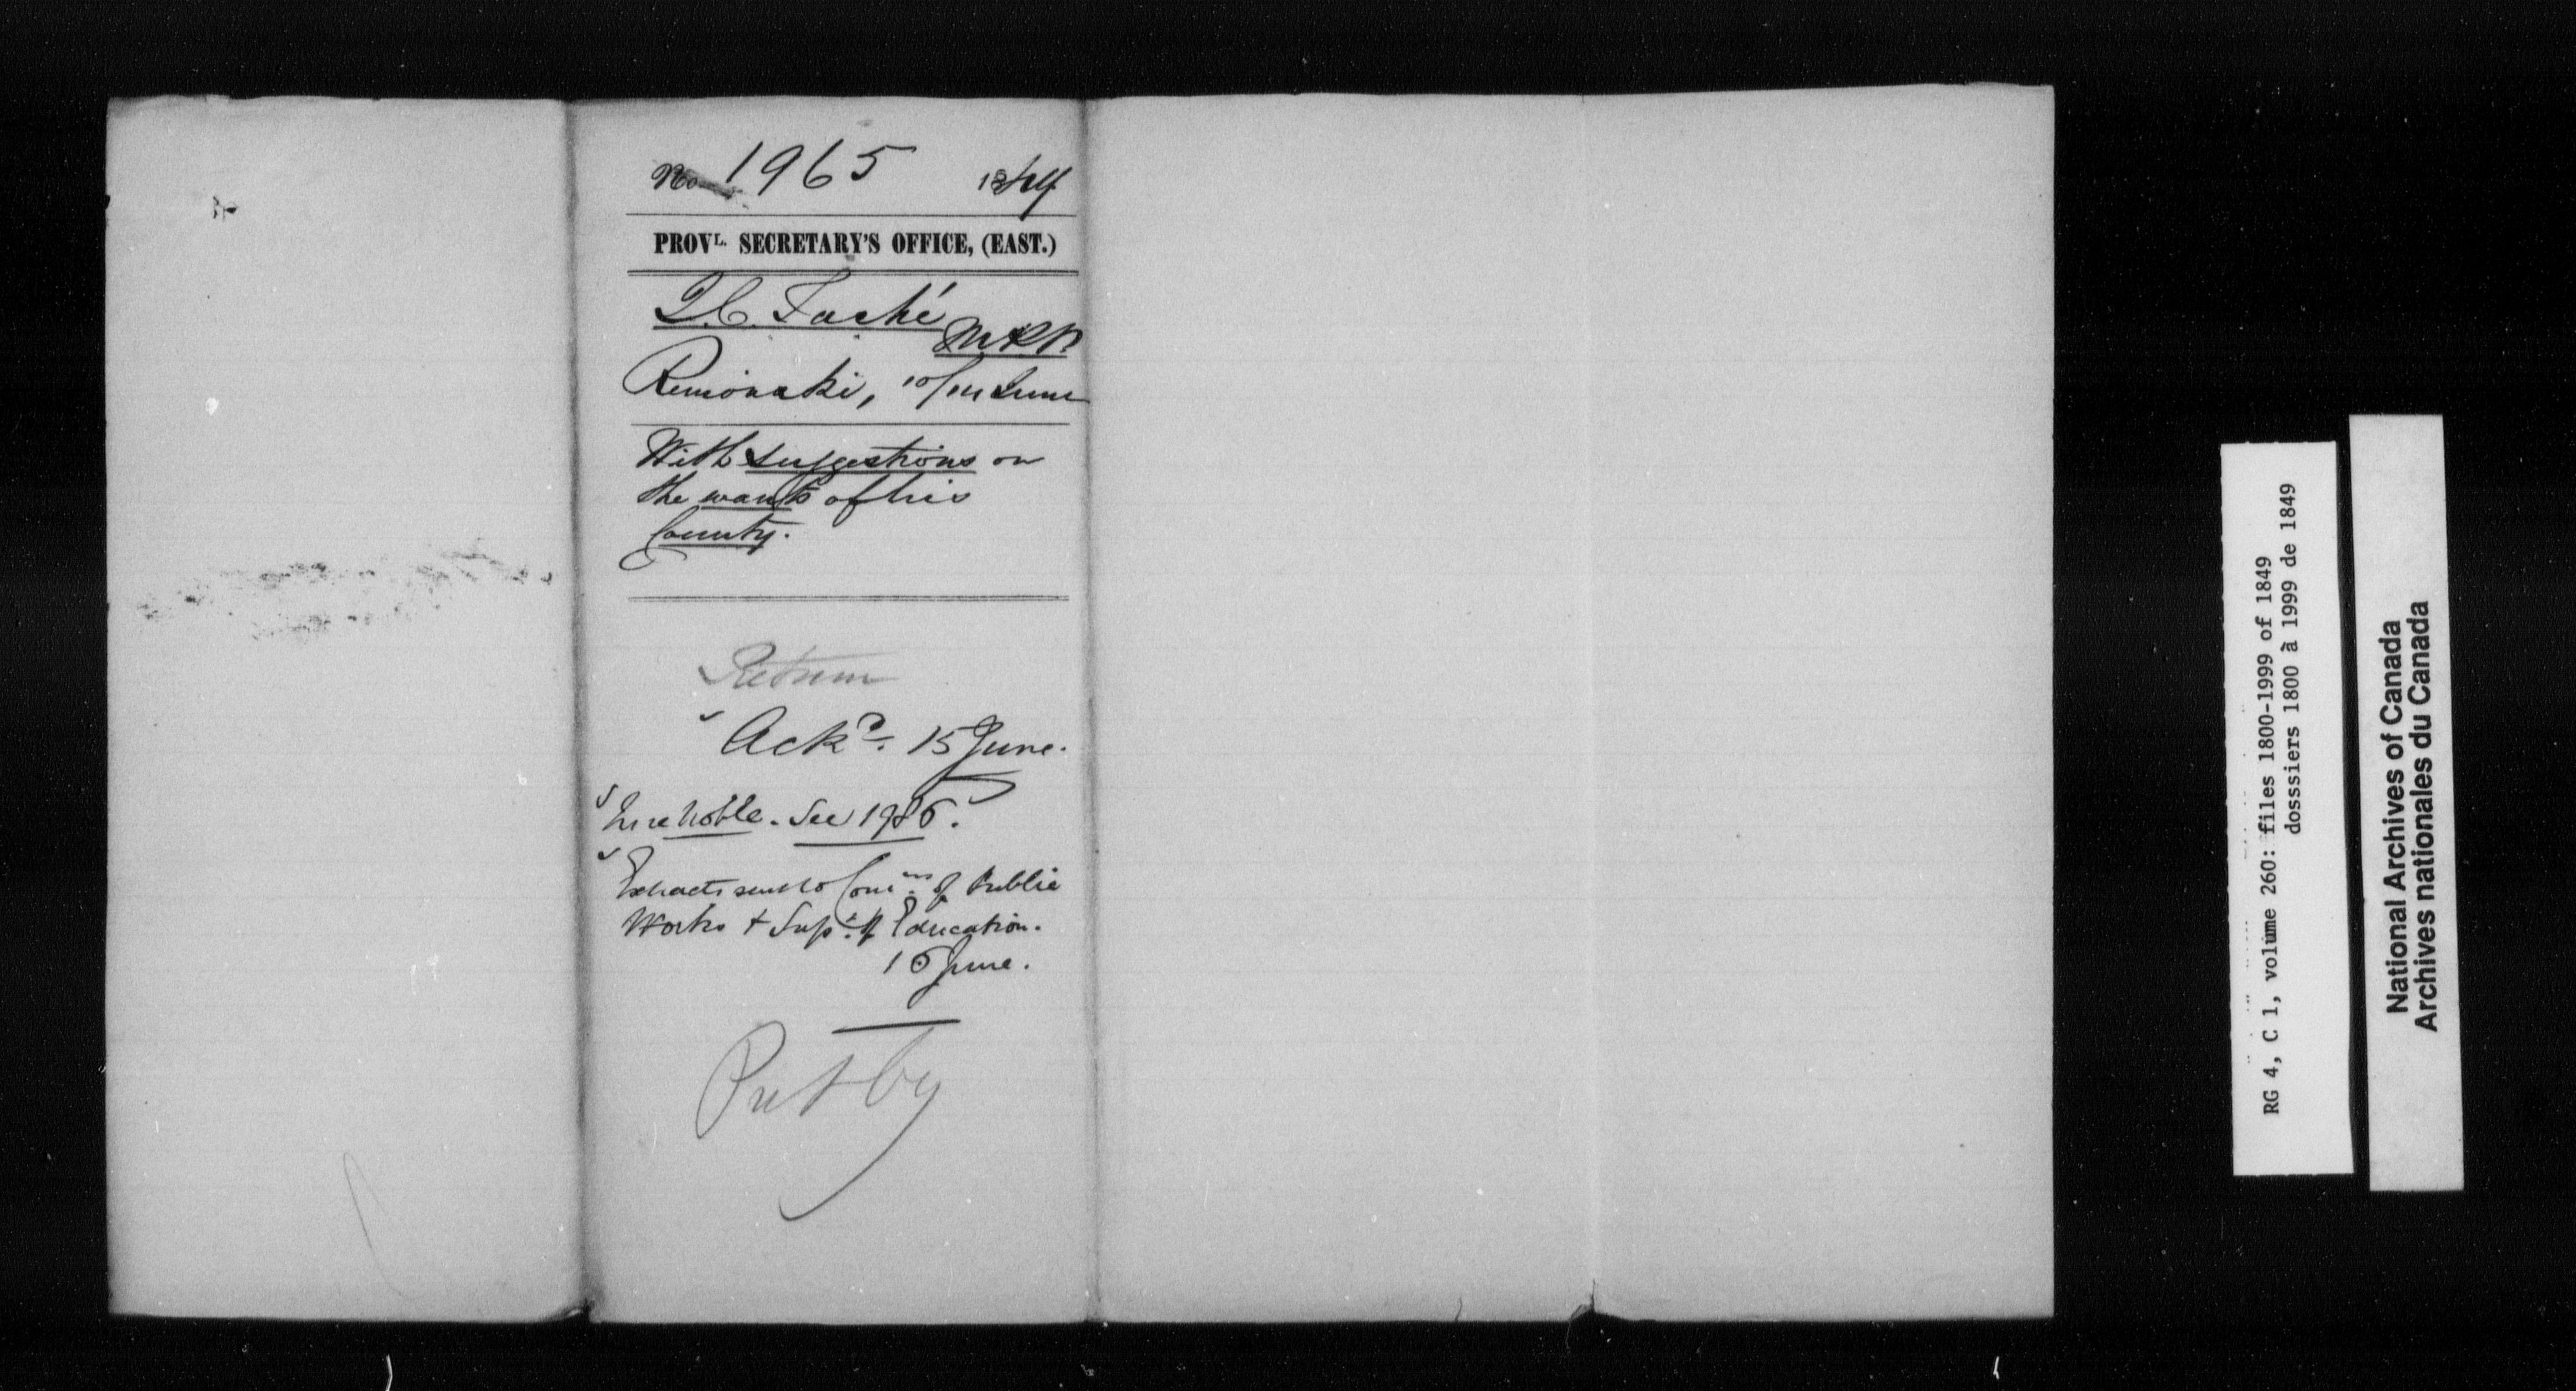 No 1965 1849
PROVL. SECRETARY'S OFFICE, (EAST.)
J.C. Taché
MPP
Rimouski, 10/14 June
With suggestions on
the wants of his
County.
Return
Ackd. 15 June.
Noble. See 1986.
Extracts sent to Comrs. of Public
Works & Supt. of Education.
16 June.
Put by
RG 4, C 1, volume 260: files 1800-1999 of 1849
dosssiers 1800 à 1999 de 1849
National Archives of Canada
Archives nationales du Canada